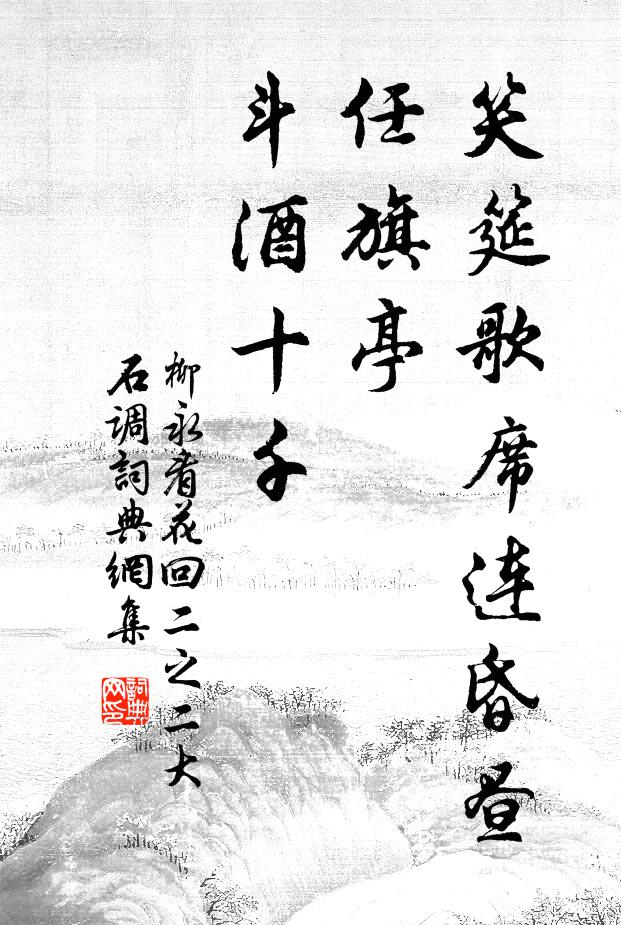 笑筵歌席连昏昼
任旗亭
斗酒十千
柳永看花回二之二大
石调詞典網集
詞典网印